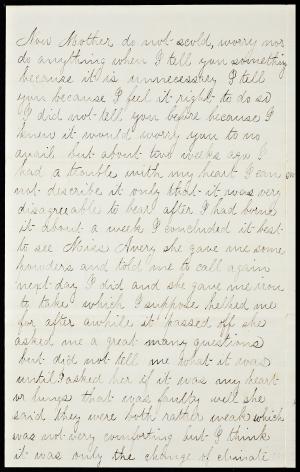 Now Mother do not scold, worry nor
do anything when I tell you something
because it is unnecessary I tell
you because I feel it right to do so
I did not tell you before because I
knew it would worry you to no
avail but about two weeks ago I
had a trouble with my heart I can
not describe it only that it was very
disagreeable to bear after I had borne
it about a week I concluded it best
to see Miss Avery she gave me some
powders and told me to call again
next day I did and she gave me iron
to take which I suppose helped me
for after awhile it passed off she
asked me a great many questions
but did not tell me what it was
until I asked her if it was my heart
or lungs that was faulty well she
said they were both rather weak which
was not very comforting but I think
it was only the change of climate